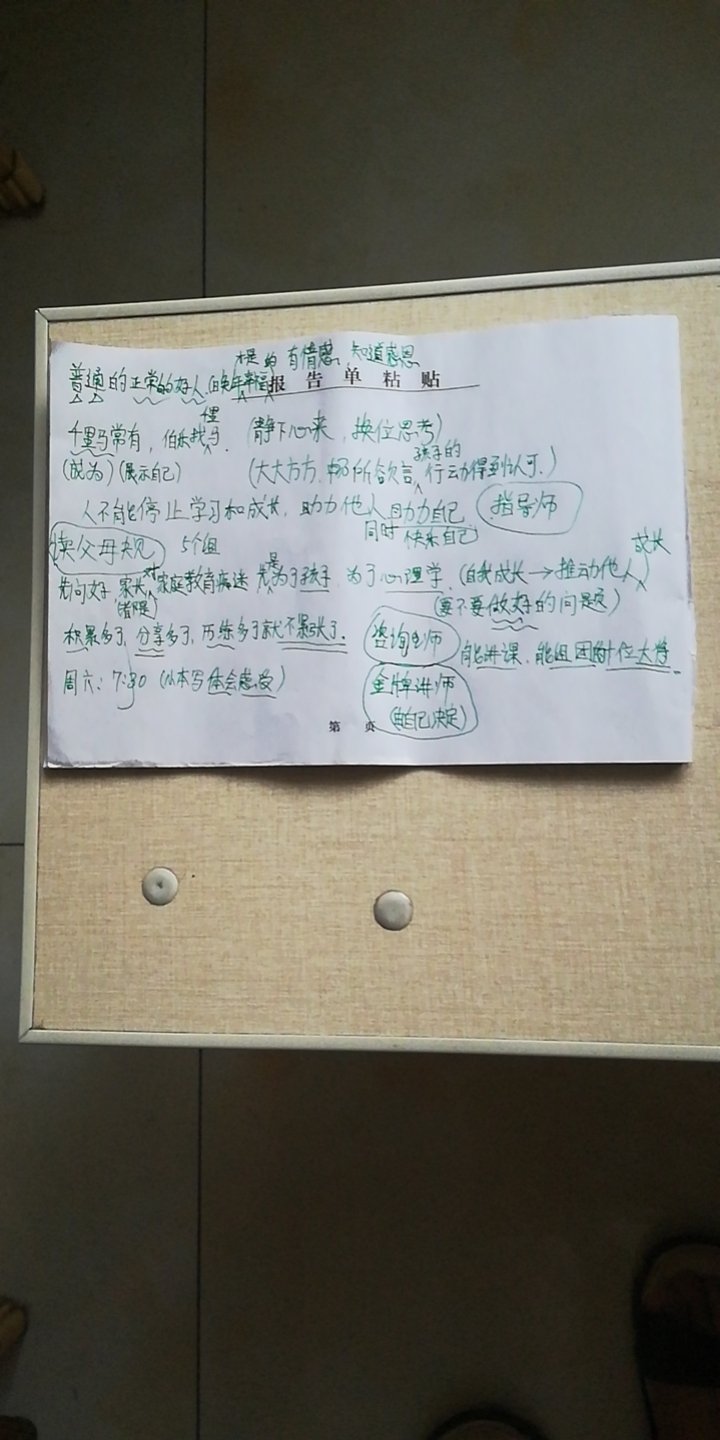 有情感、知道感恩
普通的正常的好人(自觉幸福)
报告单粘贴
千里马常有，伯乐找千里马 (静下心来，换位思考)
(成为)(展示自己) (大大方方，畅所欲言，孩子的行动得到认可.)
人不能停止学习和成长，助力他人同时助力自己 快乐自己 指导师
读父母规 5个组
先问好，家长对家庭教育 先是为了孩子 为了心理学. (自我成长→推动他人成长)
(要不要做好的问题)
积累多了，分享多了，历练多了就不紧张了. 咨询老师 能讲课、能组团
周六：7:30 (从本写体会感受) 金牌讲师
(由自己决定)
第 页